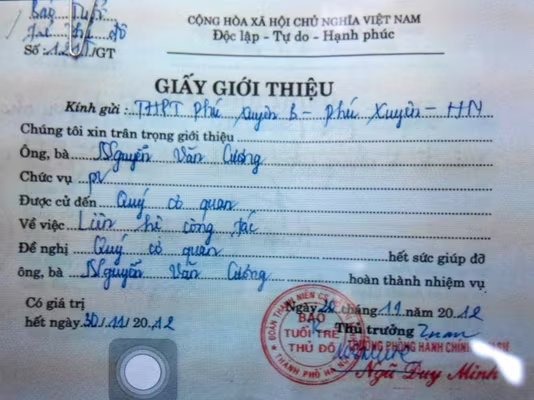 CỘNG HÒA XÃ HỘI CHỦ NGHĨA VIỆT NAM
Độc lập - Tự do - Hạnh phúc
Báo Tuổi
Số : /GT
GIẤY GIỚI THIỆU
Kính gửi : THPT Phú Xuyên B - Phú Xuyên - HN
Chúng tôi xin trân trọng giới thiệu
Ông, bà Nguyễn Văn Cương
Chức vụ pv
Được cử đến Quý cơ quan
Về việc Liên hệ công tác
Đề nghị Quý cơ quan hết sức giúp đỡ
ông, bà Nguyễn Văn Cương hoàn thành nhiệm vụ
Có giá trị
hết ngày 30/11/2012
Ngày 20 tháng 11 năm 2012
Thủ trưởng
ĐOÀN THANH NIÊN
BÁO
TUỔI TRẺ
THỦ ĐÔ
THÀNH PHỐ HÀ
TRƯỞNG PHÒNG HÀNH CHÍNH
Ngã Duy Minh